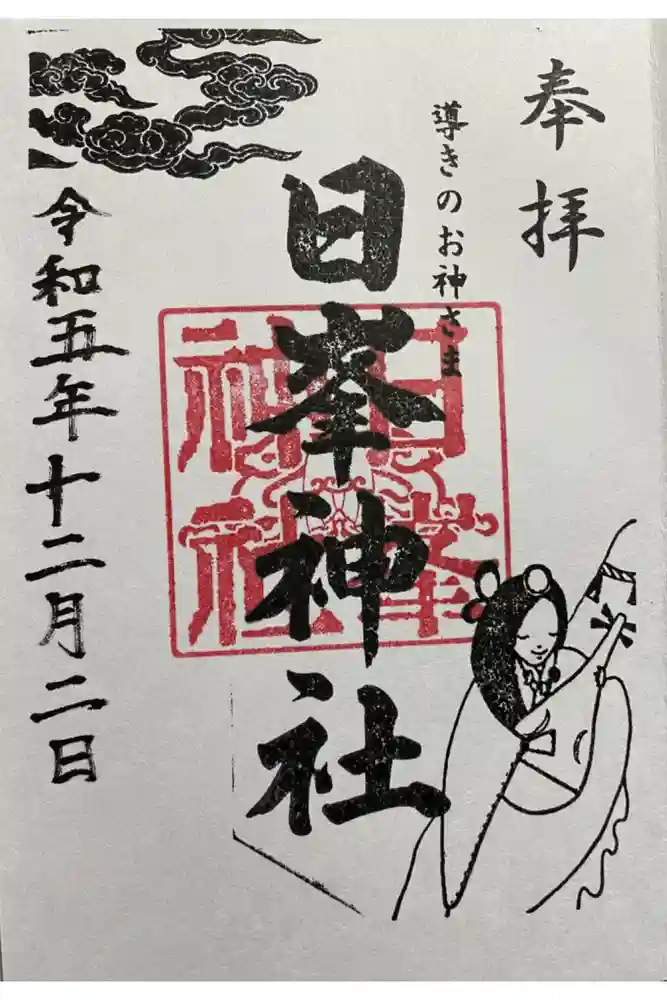 奉拝
導きのお神さま
日峯神社
日峯
神社
令和五年十二月二日